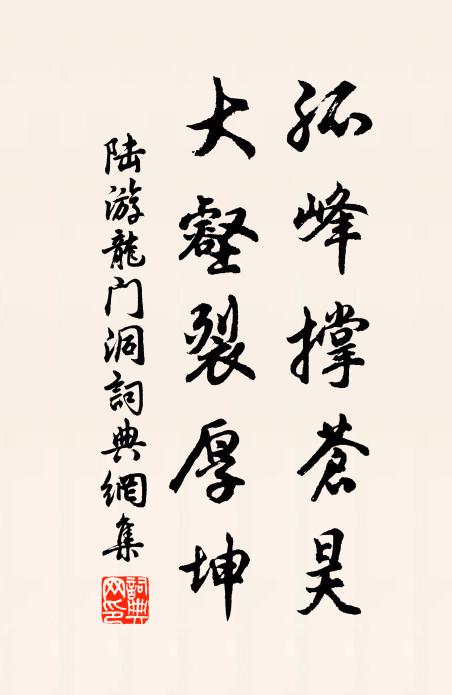 孤峰撑蒼昊
大壑裂厚坤
陆游龍门洞詞典網集
詞典网印